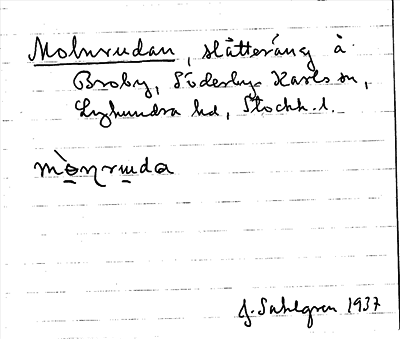 Molnrudan, slåtteräng å
Broby, Söderby-Karls sn,
Lyhundra hd, Stockh. l.
mònruda
J. Sahlgren 1937